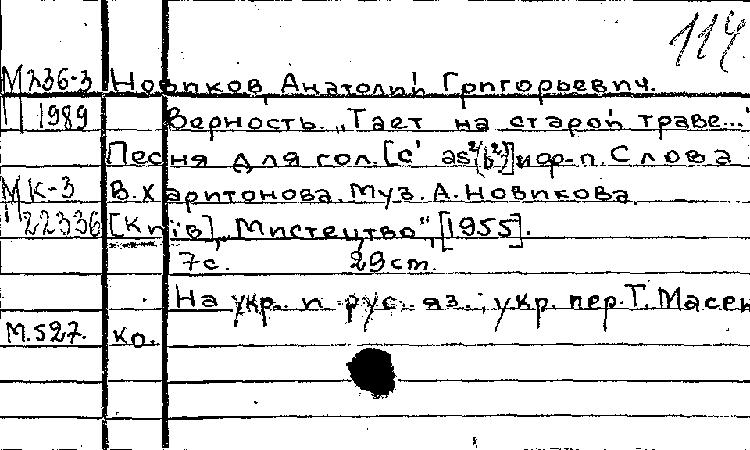 114.
М 236-3 Новиков, Анатолий Григорьевич.
1989 Верность. „Тает на старой траве..."
Песня для гол. [c' as²(b²)] и ф-п. Слова
МК-3 В. Харитонова. Муз. А. Новикова.
22336 [Київ], „Мистецтво", [1955].
7с. 29ст.
На укр. и рус. яз.; укр. пер. Т. Масен
М.527. ко.